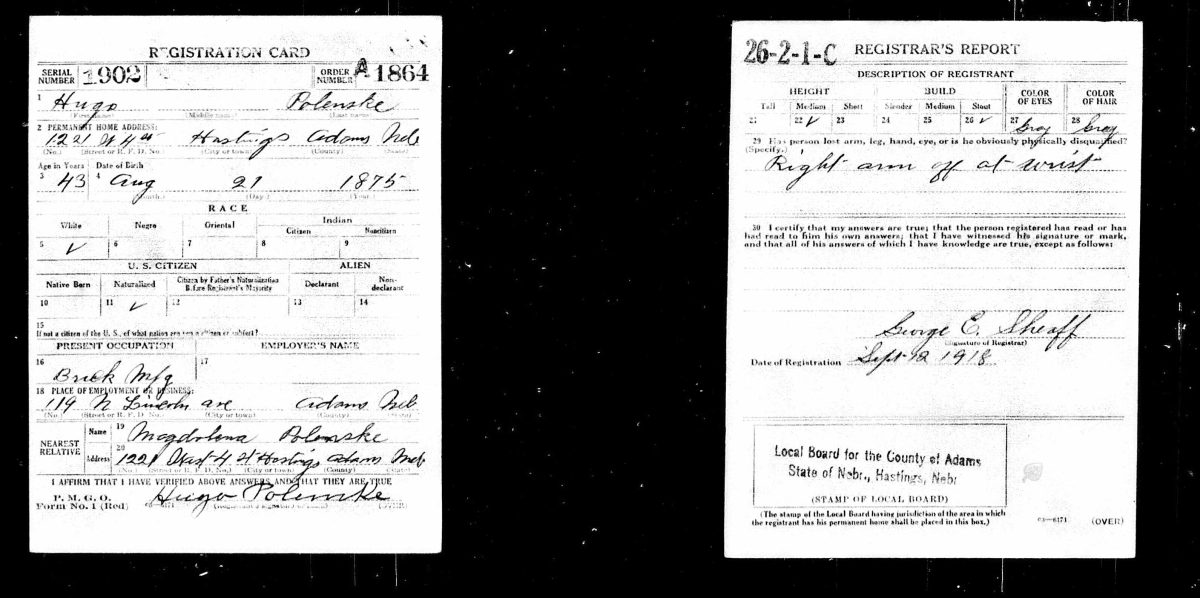 REGISTRATION CARD
SERIAL NUMBER 1902 ORDER NUMBER A 1864
1 Hugo Polenske
(First name) (Middle name) (Last name)
2 PERMANENT HOME ADDRESS:
1221 W 4 st Hastings Adams Neb
(No.) (Street or R. F. D. No.) (City or town) (County) (State)
Age in Years Date of Birth
3 43 4 Aug 21 1875
(Month.) (Day.) (Year.)
RACE
White Negro Oriental Indian
Citizen Noncitizen
5 ✓ 6 7 8 9
U. S. CITIZEN ALIEN
Native Born Naturalized Citizen by Father's Naturalization Before Registrant's Majority Declarant Non-declarant
10 11 ✓ 12 13 14
15
If not a citizen of the U. S., of what nation are you a citizen or subject?
PRESENT OCCUPATION EMPLOYER'S NAME
16 Brick Mfg 17
18 PLACE OF EMPLOYMENT OR BUSINESS:
119 N Lincoln ave Adams Neb
(No.) (Street or R. F. D. No.) (City or town) (County) (State)
NEAREST RELATIVE Name 19 Magdalena Polenske
Address 20 1221 West 4 st Hastings Adams Neb
(No.) (Street or R. F. D. No.) (City or town) (County) (State)
I AFFIRM THAT I HAVE VERIFIED ABOVE ANSWERS AND THAT THEY ARE TRUE
P. M. G. O.
Form No. 1 (Red) Hugo Polenske
(OVER)
26-2-1-C REGISTRAR'S REPORT
DESCRIPTION OF REGISTRANT
HEIGHT BUILD COLOR OF EYES COLOR OF HAIR
Tall Medium Short Slender Medium Stout
21 22 ✓ 23 24 25 26 ✓ 27 Gray 28 Gray
29 Has person lost arm, leg, hand, eye, or is he obviously physically disqualified?
(Specify.)
Right arm off at wrist
30 I certify that my answers are true; that the person registered has read or has
had read to him his own answers; that I have witnessed his signature or mark,
and that all of his answers of which I have knowledge are true, except as follows:
George E. Sheaff
(Signature of Registrar)
Date of Registration Sept 12 1918
Local Board for the County of Adams
State of Nebr., Hastings, Nebr
(STAMP OF LOCAL BOARD)
(The stamp of the Local Board having jurisdiction of the area in which
the registrant has his permanent home shall be placed in this box.)
03—6171 (OVER)